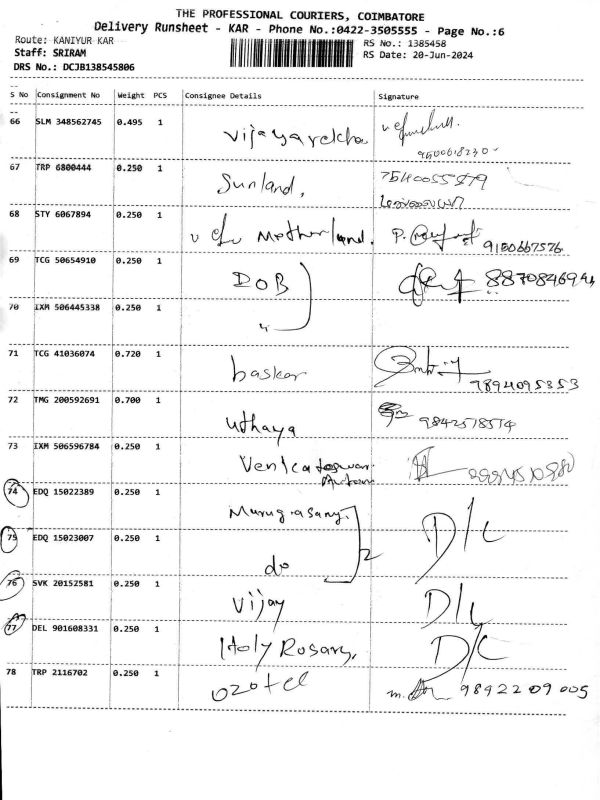 THE PROFESSIONAL COURIERS, COIMBATORE
Delivery Runsheet - KAR - Phone No.:0422-3505555 - Page No.:6
Route: KANIYUR KAR
RS No.: 1385458
Staff: SRIRAM
RS Date: 20-Jun-2024
DRS No.: DCJB138545806
S No Consignment No Weight PCS Consignee Details Signature
66 SLM 348562745 0.495 1 Vijayarekha
67 TRP 6800444 0.250 1 Sunland,
68 STY 6067894 0.250 1 P. 9150667576
69 TCG 50654910 0.250 1 DOB
70 IXM 506445338 0.250 1 "
71 TCG 41036074 0.720 1 baskar 9894095353
72 TMG 200592691 0.700 1 uthaya 9842518514
73 IXM 506596784 0.250 1
74 EDQ 15022389 0.250 1 D/L
75 EDQ 15023007 0.250 1 do 2
76 SVK 20152581 0.250 1 Vijay D/L
77 DEL 901608331 0.250 1 Holy Rosary, D/C
78 TRP 2116702 0.250 1 ozotel m. 9892209005